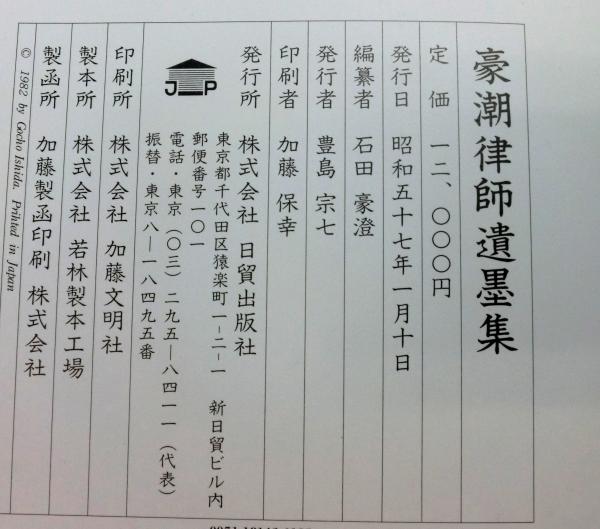 豪潮律師遺墨集
定　価　一二、〇〇〇円
発行日　昭和五十七年一月十日
編纂者　石田　豪澄
発行者　豊島　宗七
印刷者　加藤　保幸
発行所　株式会社　日貿出版社
東京都千代田区猿楽町一―二―一　新日貿ビル内
郵便番号一〇一
電話・東京（〇三）二九五―八四一一（代表）
振替・東京八―一八四九五番
J P
印刷所　株式会社　加藤文明社
製本所　株式会社　若林製本工場
製函所　加藤製函印刷　株式会社
© 1982 by Gocho Ishida. Printed in Japan